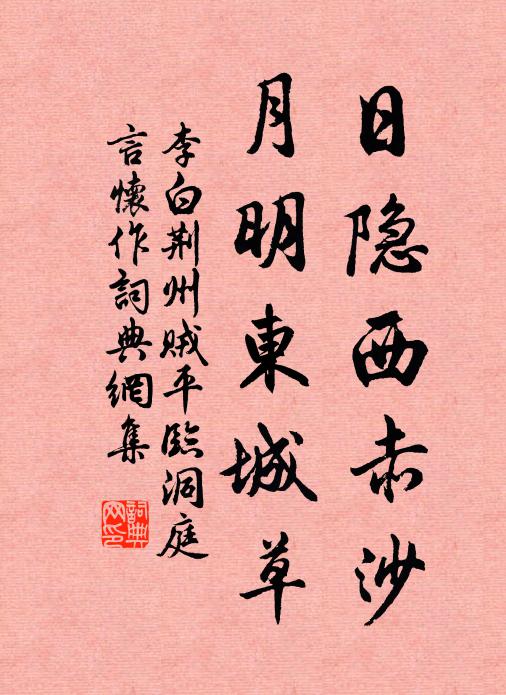 日隐西赤沙
月明東城草
李白荆州贼平臨洞庭
言懷作詞典網集
詞典網印